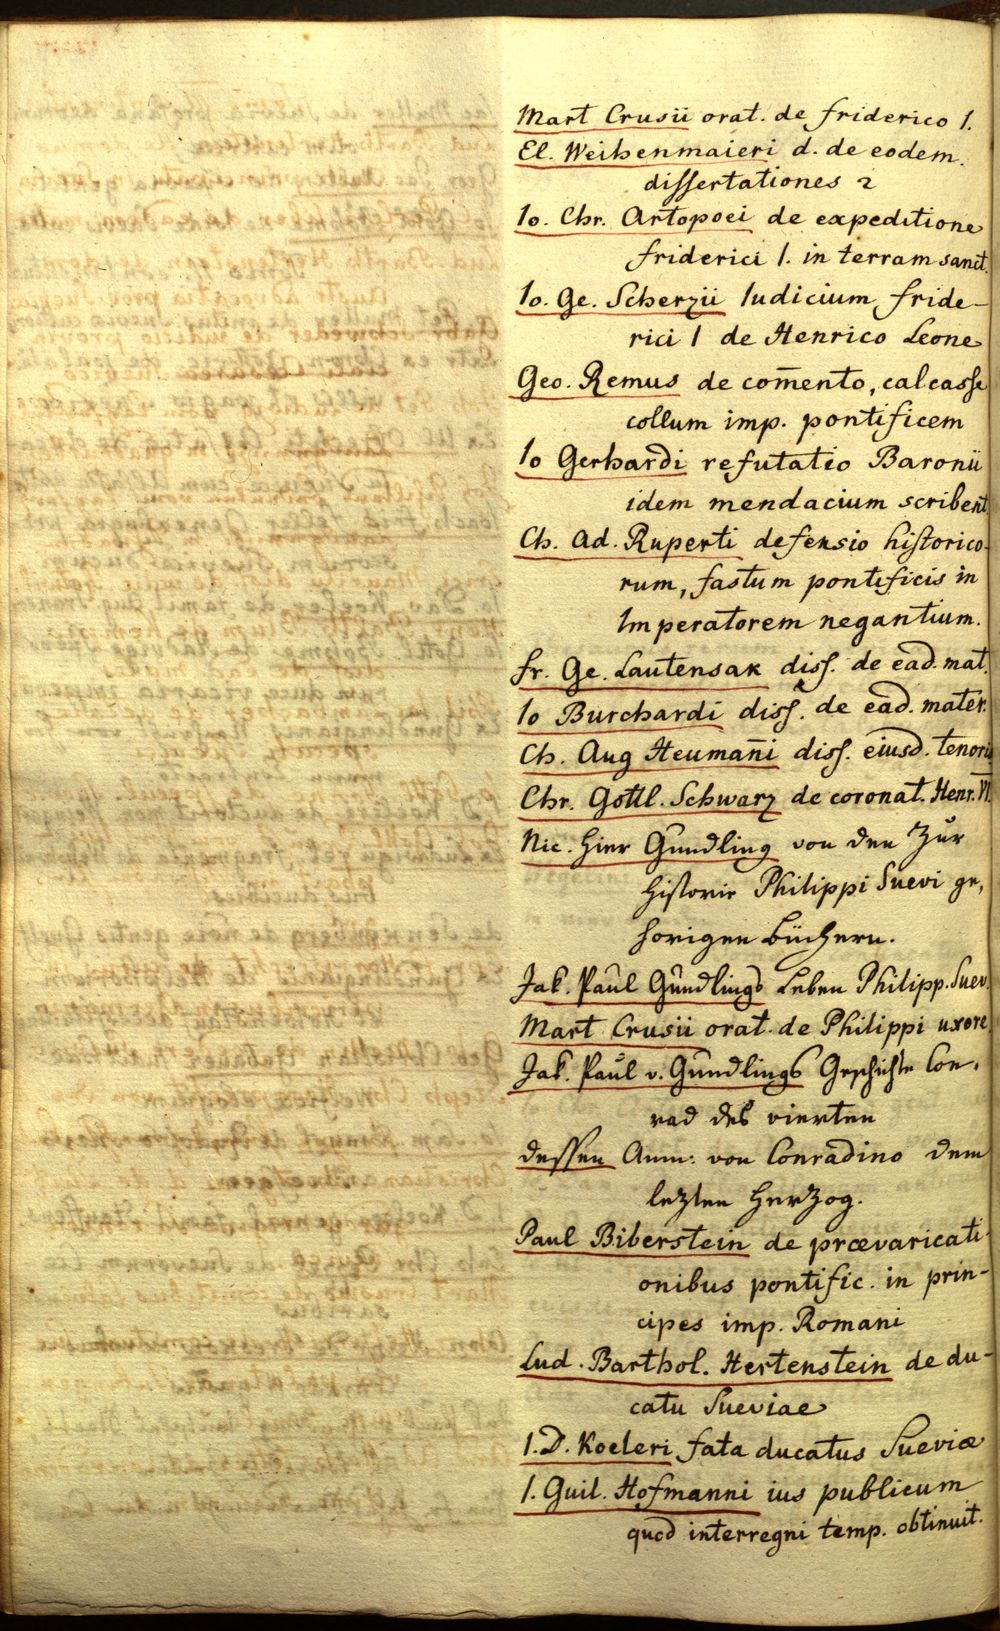 Mart Crusii orat. de friderico 1.
El. Weihenmaieri d. de eodem.
dissertationes 2
Io. Chr. Artopoei de expeditione
friderici I. in terram sanct.
Io. Ge. Scherzii Iudicium fride-
rici I de Henrico Leone
Geo. Remus de com̄ento, calcasse
collum imp. pontificem
Io Gerhardi refutatio Baronii
idem mendacium scribent
Ch. Ad. Ruperti defensio historico-
rum, fastum pontificis in
Imperatorem negantium.
Fr. Ge. Lautensak diss. de ead. mat.
Io Burchardi diss. de ead. mater.
Ch. Aug Heumañi diss. eiusd. tenoris
Chr. Gottl. Schwarz de coronat. Henr. VI.
Nic. Hier Gundling von den zur
Historie Philippi Suevi ge,
hörigen Büchern.
Jak. Paul Gundlings Leben Philipp. Suev.
Mart Crusii orat. de Philippi uxore
Jak. Paul v. Gundlings Geschichte Con,
rad des vierten
dessen Anm: von Conradino dem
lezten Herzog.
Paul Biberstein de prævaricati-
onibus pontific. in prin-
cipes imp. Romani
Lud. Barthol. Hertenstein de du-
catu Sueviae
I. D. Koeleri fata ducatus Sueviæ
I. Guil. Hofmanni ius publicum
quod interregni temp. obtinuit.